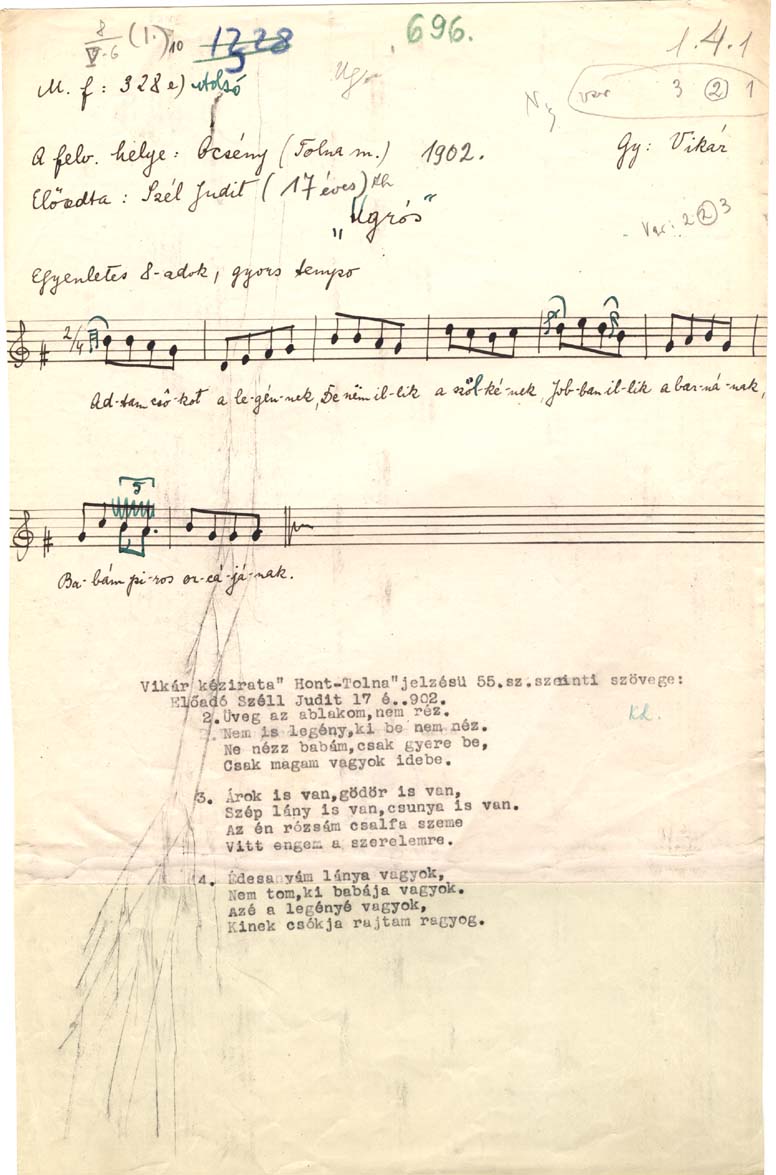 8
V-6 (I.) 10 1228 696. 1.4.1
5
M. f: 328 e) utolsó Ug var 3 2 1
A felv. helye: Őcsény (Tolna m.) 1902. Gy: Vikár
Előadta: Szél Judit (17 éves)
„Ugrós” Var: 2 2 3
Egyenletes 8-adok, gyors tempo
2/4
Ad-tam csó-kot a le-gén-nek, De nëm il-lik a sző-ké-nek, Job-ban il-lik a bar-ná-nak,
5
Ba-bám pi-ros or-cá-já-nak.
Vikár kézirata" Hont-Tolna"jelzésü 55.sz.szeinti szövege:
Előadó Széll Judit 17 é..902.
2.Üveg az ablakom,nem réz.
Nem is legény,ki be nem néz.
Ne nézz babám,csak gyere be,
Csak magam vagyok idebe.
3. Árok is van,gödör is van,
Szép lány is van,csunya is van.
Az én rózsám csalfa szeme
Vitt engem a szerelemre.
4. Édesanyám lánya vagyok,
Nem tom,ki babája vagyok.
Azé a legényé vagyok,
Kinek csókja rajtam ragyog.